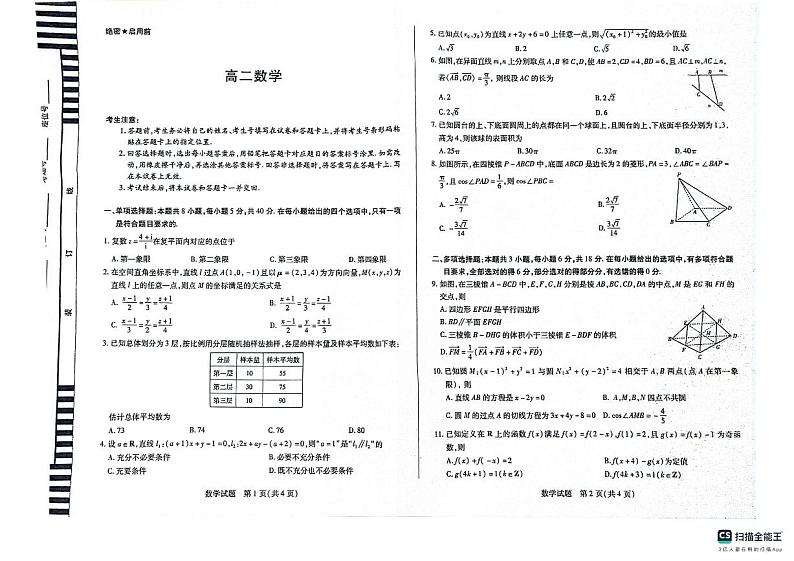 绝密★启用前
高二数学
考生注意:
1. 答题前,考生务必将自己的姓名、考生号填写在试卷和答题卡上,并将考生号条形码粘
贴在答题卡上的指定位置.
2. 回答选择题时,选出每小题答案后,用铅笔把答题卡对应题目的答案标号涂黑.如需改
动,用橡皮擦干净后,再选涂其他答案标号.回答非选择题时,将答案写在答题卡上.写
在本试卷上无效.
3. 考试结束后,将本试卷和答题卡一并交回.
一、单项选择题:本题共8小题,每小题5分,共40分.在每小题给出的四个选项中,只有一项
是符合题目要求的.
1. 复数z=(4+i)/i在复平面内对应的点位于
A. 第一象限 B. 第二象限 C. 第三象限 D. 第四象限
2. 在空间直角坐标系中,直线l过点A(1,0,-1)且以μ=(2,3,4)为方向向量,M(x,y,z)为
直线l上的任意一点,则点M的坐标满足的关系式是
A. (x-1)/2=y/3=(z+1)/4 B. (x+1)/2=y/3=(z-1)/4
3. 已知总体划分为3层,按比例用分层随机抽样法抽样,各层的样本量及样本平均数如下表:
分层 样本量 样本平均数
第一层 10 55
第二层 30 75
第三层 10 90
估计总体平均数为
A. 73 B. 74 C. 76 D. 80
4. 设a∈R,直线l₁:(a+1)x+y-1=0,l₂:2x+ay-(a+2)=0,则“a=1”是“l₁∥l₂”的
A. 充分不必要条件 B. 必要不充分条件
C. 充要条件 D. 既不充分也不必要条件
数学试题 第1页(共4页)
5. 已知点(x₀,y₀)为直线x+2y+6=0上任意一点,则√((x₀+1)²+y₀²)的最小值是
A. √3 B. 2 C. √5 D. √6
6. 如图,在异面直线m,n上分别取点A,B和C,D,使AB=2,CD=4,BD=6,且AC⊥m,AC⊥n,
若⟨AB,CD⟩=π/3,则线段AC的长为
A. 2 B. 2√2
C. 4√2 D. 6
7. 已知圆台的上、下底面圆周上的点都在同一个球面上,且圆台的上、下底面半径分别为1,3,
高为4,则该球的表面积为
A. 25π B. 30π C. 32π D. 40π
8. 如图所示,在四棱锥P-ABCD中,底面ABCD是边长为2的菱形,PA=3,∠ABC=∠BAP=
π/3,且cos∠PAD=1/6,则cos∠PBC=
A. -2√7/7 B. 2√7/7
C. -3√7/14 D. 3√7/14
二、多项选择题:本题共3小题,每小题6分,共18分.在每小题给出的选项中,有多项符合题
目要求,全部选对的得6分,部分选对的得部分分,有选错的得0分.
9. 如图,在三棱锥A-BCD中,E,F,G,H分别是棱AB,BC,CD,DA的中点,M是EG和FH的
交点,则
A. 四边形EFGH是平行四边形
B. BD∥平面EFGH
C. 三棱锥E-DHG的体积小于三棱锥E-BDF的体积
D. FM=1/4(FA+FB+FC+FD)
10. 已知圆M:(x-1)²+y²=1与圆N:x²+(y-2)²=4相交于A,B两点(点A在第一象
限),则
A. 直线AB的方程是x-2y=0 B. A,M,B,N四点不共圆
C. 圆M的过点A的切线方程为3x+4y-8=0 D. cos∠AMB=-4/5
11. 已知定义在R上的函数f(x)满足f(x)=f(2-x),f(1)=2,且g(x)=f(x)-1为奇函
数,则
A. f(x)+f(-x)=2 B. f(x+4)-g(x)为定值
C. g(4k+1)=1(k∈Z) D. f(4k+3)=1(k∈Z)
数学试题 第2页(共4页)
CS 扫描全能王
3亿人都在用的扫描App